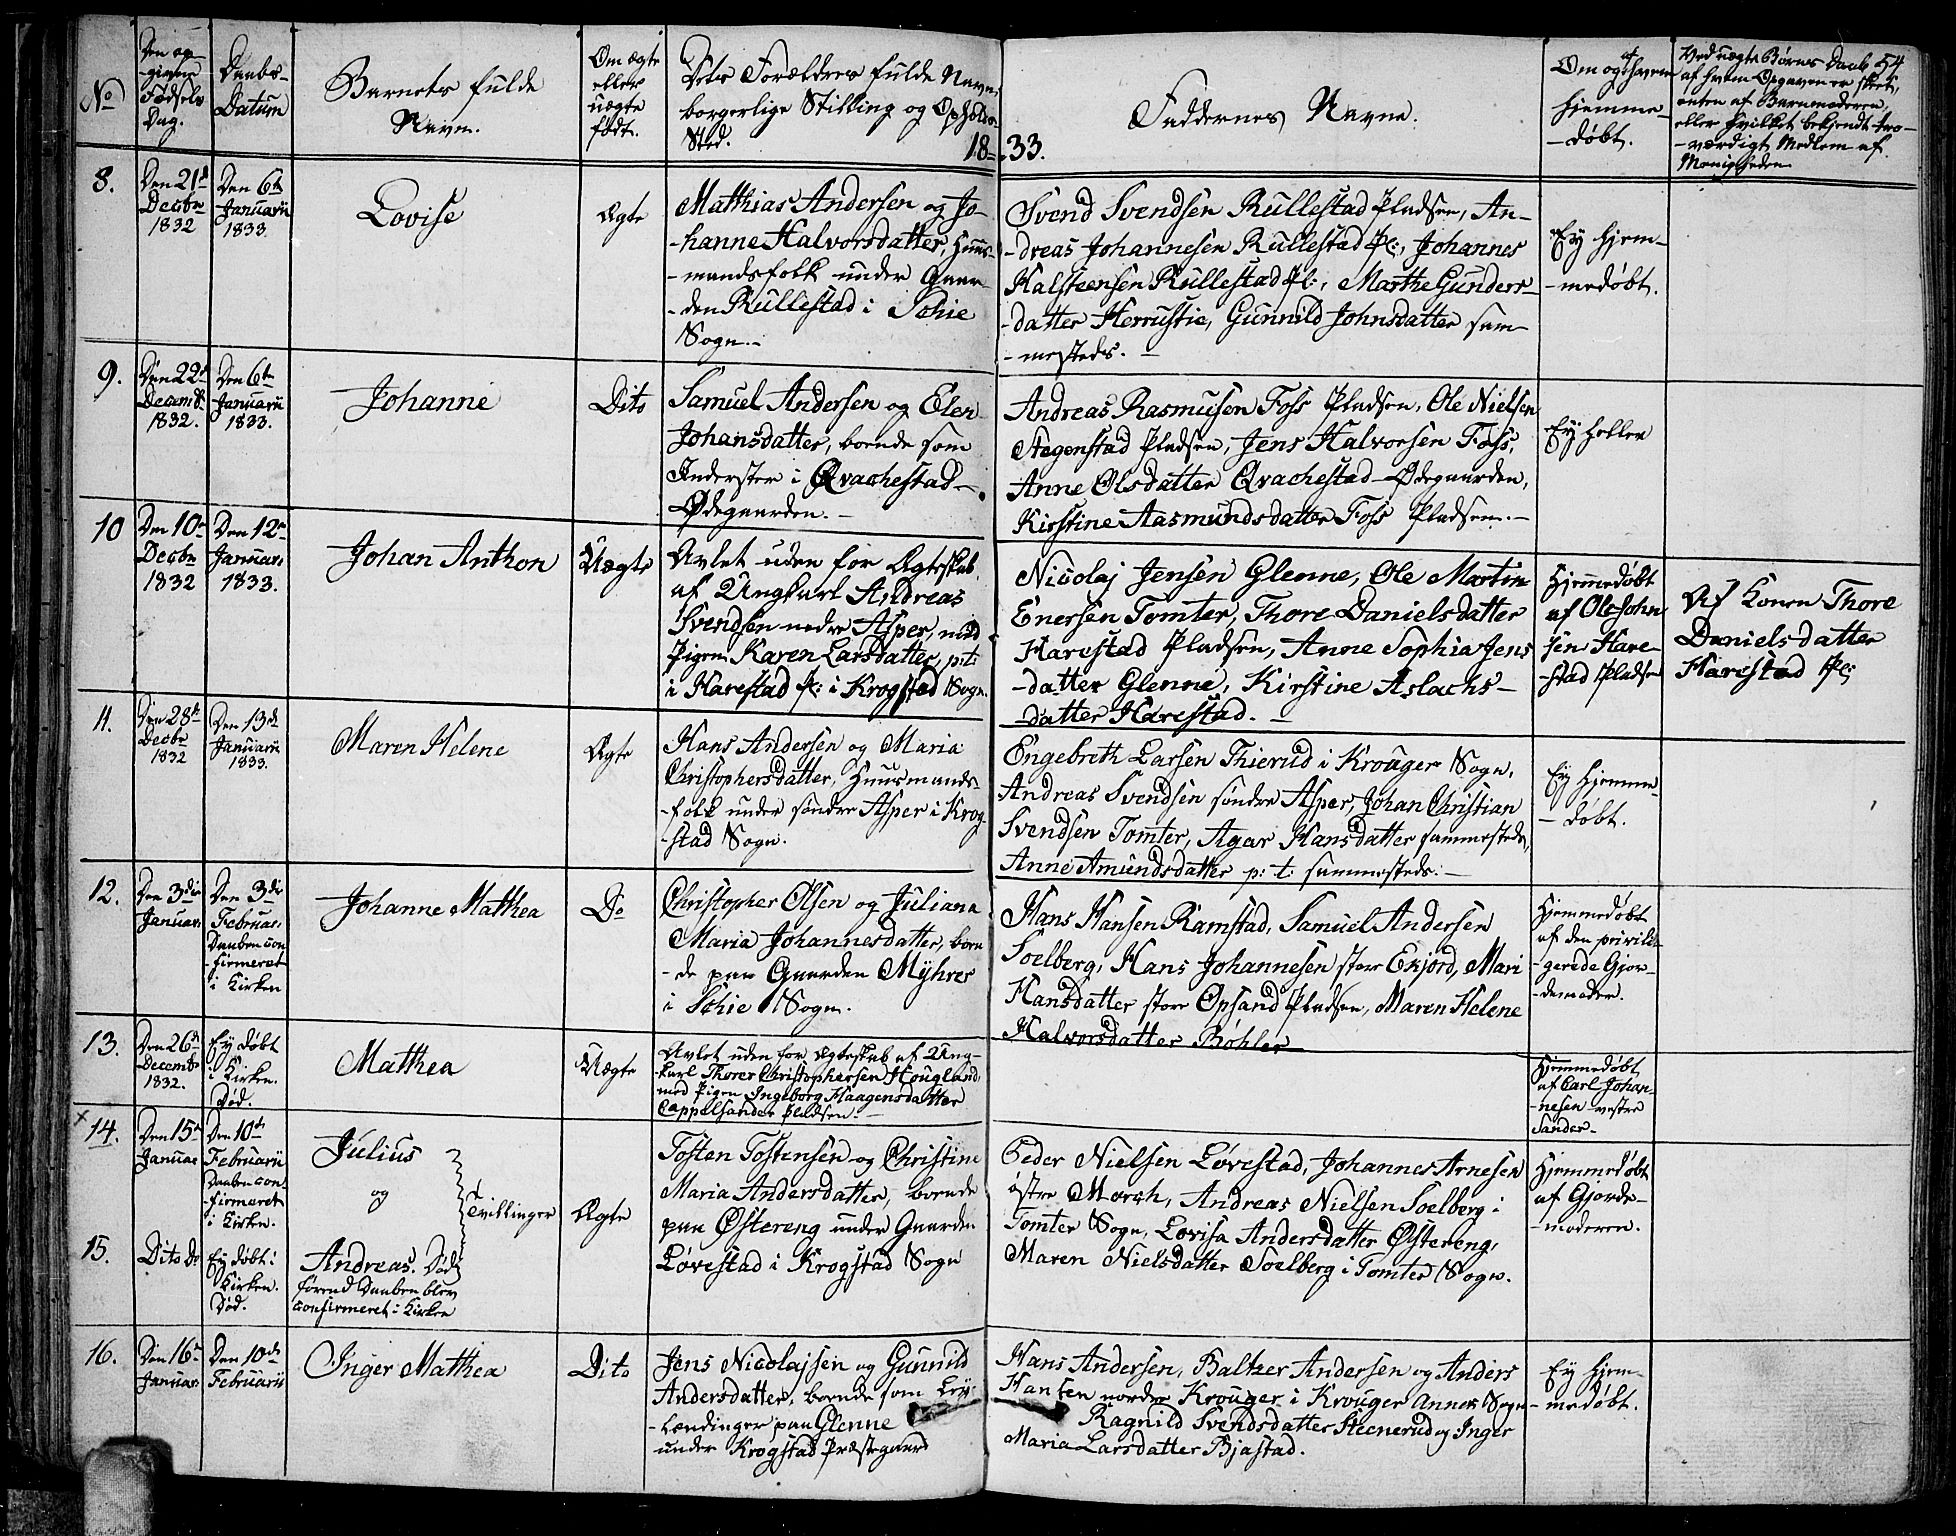 No
Den op-
-givne
Fødsels
Dag.
Daabs-
Datum
Barnets fulde
Navn.
Om ægte
eller
uægte
født.
Dets Forældres fulde Navne,
borgerlige Stilling og Opholds-
Sted.
18-33.
Faddernes Navne.
Om og af hvem
hjemme-
-døbt.
Ved uægte Børns Daab 54
af hvem Opgaven er skeet,
enten af Barnemoderen,
eller hvilket bekjendt tro-
-værdigt Medlem af
Menigheden
8.
Den 21de
Decbr
1832
Den 6te
Januarii
1833.
Lovise
Ægte
Matthias Andersen og Jo-
-hanne Halvorsdatter, Huus-
-mandsfolk under Gaar-
-den Rullestad i Schie
Sogn.-
Svend Svendsen Rullestad Pladsen, An-
-dreas Johannesen Rullestad Pl:, Johannes
Kalsteensen Rullestad Pl:, Marthe Gunders-
-datter Herrustie, Gunnild Johnsdatter sam-
-mesteds.-
Ey hjem-
-medøbt.
9.
Den 22de
Decemb.
1832.
Den 6te
Januarii
1833.
Johanne
Dito
Samuel Andersen og Elen
Johansdatter, boende som
Inderster i Qvachestad-
Ødegaarden.-
Andreas Rasmusen Foss Pladsen, Ole Nielsen
Stegenstad Pladsen, Jens Halvorsen Foss,
Anne Olsdatter Qvachestad-Ødegaarden,
Kirstine Aasmundsdatter Foss Pladsen.-
Ey heller
10
Den 10de
Decbr
1832
Den 12te
Januari
1833.
Johan Anthon
Uægte
Avlet uden for Ægteskab
af Ungkarl Andreas
Svendsen nedre Asper, med
Pigen Karen Larsdatter, p:t:
i Harestad Pl: i Krogstad Sogn.
Nicolaj Jensen Glenne, Ole Martin
Enersen Tomter, Thore Danielsdatter
Harestad Pladsen, Anne Sophia Jens
-datter Glenne, Kirstine Aslachs-
-datter Harestad.-
Hjemmedøbt
af Ole John
sen Hare-
-stad Pladsen
Af Konen Thore
Danielsdatter
Harestad Pl:
11.
Den 28de
Decbr
1832
Den 13de
Januarii
1833.
Maren Helene
Ægte
Hans Andersen og Maria
Christophersdatter, Huusmands-
-folk under søndre Asper i Krog-
-stad Sogn.
Engebreth Larsen Thierud i Krouger Sogn,
Andreas Svendsen søndre Asper, Johan Christian
Svendsen Tomter, Agar Hansdatter sammesteds,
Anne Amundsdatter p: t: sammesteds.-
Ey hjemme-
-døbt.
12.
Den 3die
Januari
Den 3die
Februari
Daaben con
-firmeret
i Kirken
Johanne Mathea
Do
Christopher Olsen og Juliana
Maria Johannesdatter, boen
-de paa Gaarden Myhrer
i Schie Sogn.
Hans Hansen Ramstad, Samuel Andersen
Soelberg, Hans Johannesen store Ekjord, Mari
Hansdatter store Opsand Pladsen, Maren Helene
Halvorsdatter Bøhler
Hjemmedøbt
af den privile-
-gerede Gjor-
-demoder.
13.
Den 26de
Decembr
1832.
Ey døbt
i Kirken.
Død.
Matthea
Uægte
Avlet uden for Ægteskab af Ung-
karl Thorer Christophersen Hougland,
med Pigen Ingeborg Haagensdatter
Cappelsander Pladsen.-
Hjemmedøbt
af Carl Johan-
-nesen vestre
Sander-
x 14.
Den 15de
Januar
Den 10de
Februarii
Daaben con-
-firmeret
i Kirken.
Julius
og
Tvillinger
Ægte
Tosten Tostensen og Christine
Maria Andersdatter, boende
paa Østereng under Gaarden
Løvestad i Krogstad Sogn
Peder Nielsen Løvestad, Johannes Arnesen
østre Morch, Andreas Nielsen Soelberg i
Tomter Sogn, Lovisa Andersdatter Østereng,
Maren Nielsdatter Soelberg i Tomter Sogn.
Hjemmedøbt
af Gjorde-
-moderen.
15.
Dito Do
Ey døbt i
Kirken.
Død.
Andreas. Død
førend Daaben blev
confirmeret i Kirken
16.
Den 16de
Januari
Den 10de
Februarii
Inger Mathea
Dito
Jens Nicolajsen og Gunnild
Andersdatter, boende som Ley-
-lændinger paa Glenne
under Krogstad Præstegaard
Hans Andersen, Baltzer Andersen og Anders
Hansen nordre Krouger i Krouger Annex Sogn
Ragnild Svendsdatter Steenerud og Inger
Maria Larsdatter Bjastad.
Ey hjem-
-medøbt.